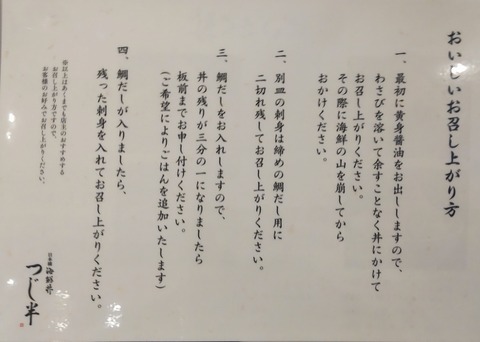 おいしいお召し上がり方
一、最初に黄身醤油をお出ししますので、
わさびを溶いて余すことなく丼にかけて
お召し上がりください。
その際に海鮮の山を崩してから
おかけください。
二、別皿の刺身は締めの鯛だし用に
二切れ残してお召し上がりください。
三、鯛だしをお入れしますので、
丼の残りが三分の一になりましたら
板前までお申し付けください。
(ご希望によりごはんを追加いたします)
四、鯛だしが入りましたら、
残った刺身を入れてお召し上がりください。
※以上はあくまでも店主のおすすめする
お召し上がり方ですので、
お客様のお好みでお召し上がりください。
日本橋 海鮮丼
つじ半